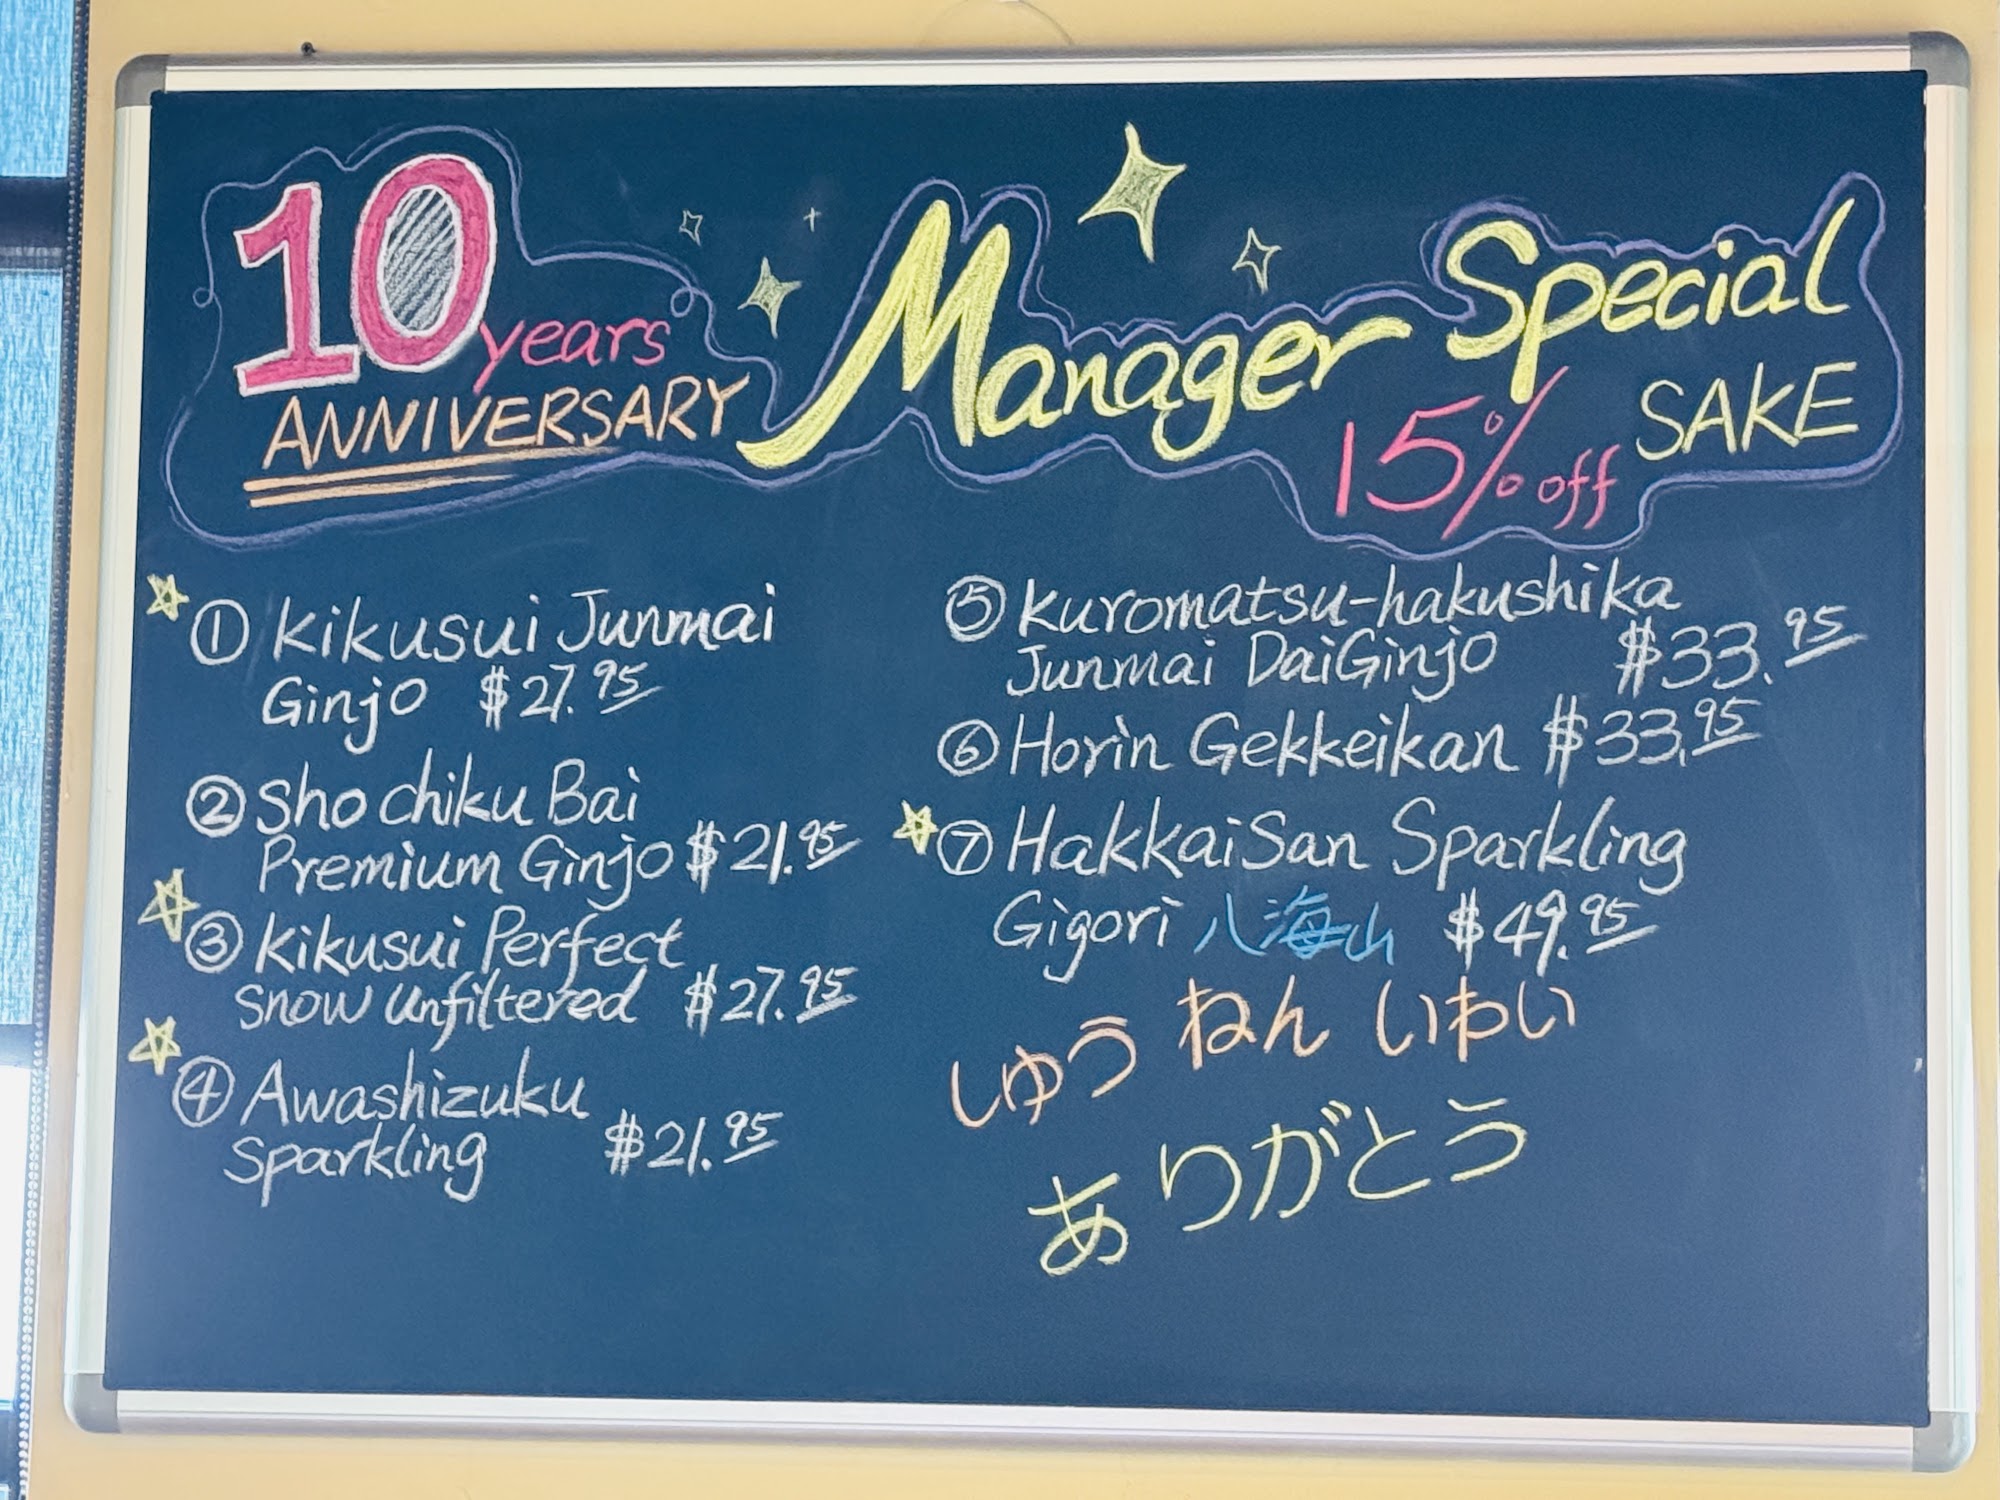 10 years
ANNIVERSARY
Manager Special
15% off SAKE
① Kikusui Junmai
Ginjo $27.95
② Sho chiku Bai
Premium Ginjo $21.95
③ Kikusui Perfect
Snow Unfiltered $27.95
④ Awashizuku
Sparkling $21.95
⑤ Kuromatsu-hakushika
Junmai DaiGinjo $33.95
⑥ Horin Gekkeikan $33.95
⑦ HakkaiSan Sparkling
Gigori 八海山 $49.95
しゆう ねん いわい
ありがとう